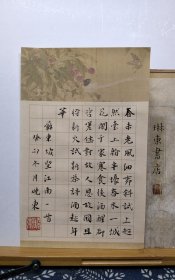 春未老風細柳斜斜試上超
然臺上看半壕春水一城
花烟雨暗千家寒食後酒醒却
咨嗟休對故人思故國且
將新火試新茶詩酒趁年
華
蘇東坡望江南一首
癸卯冬月曉東
書店